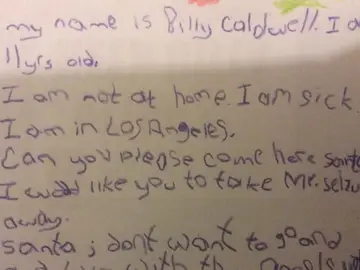 my name is Billy Caldwell. I a
11yrs old.
I am not at home. I am sick.
I am in LOS Angeles.
Can you please come here sant
I would like you to take Mr. seizu
away.
santa ; dont want to go and
with the